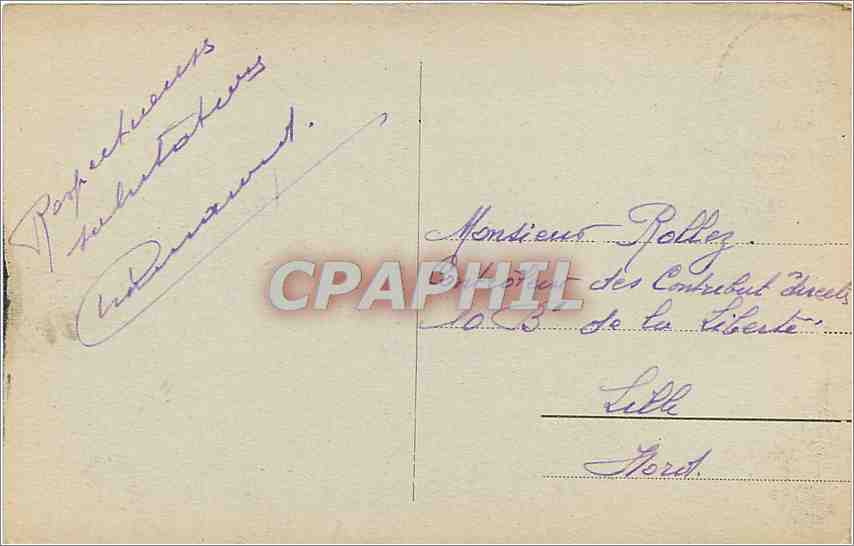 Respectueuses
salutations
Monsieur Rollez.
Contrôleur des Contribut directes
10 Bd de la Liberté
Lille
Nord.
CPAPHIL